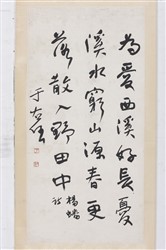 為愛西溪好長憂
溪水窮山源春更
落散入野田中
楊蟠詩
于右任